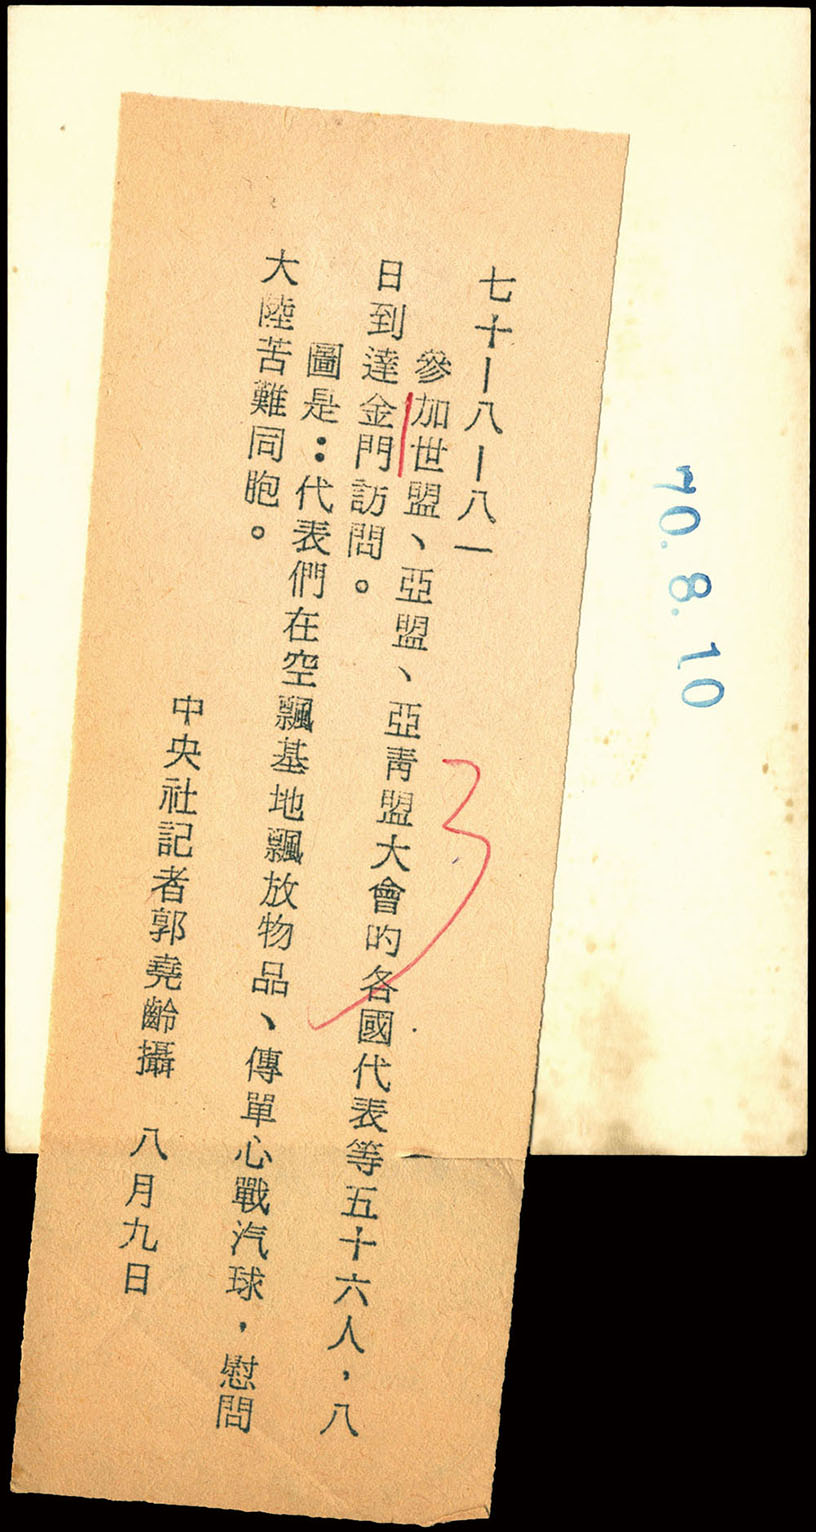 70.8.10
七十－八－八一
參加世盟、亞盟、亞青盟大會的各國代表等五十六人，八
日到達金門訪問。
圖是：代表們在空飄基地飄放物品、傳單心戰汽球，慰問
大陸苦難同胞。
中央社記者郭堯齡攝　八月九日
3